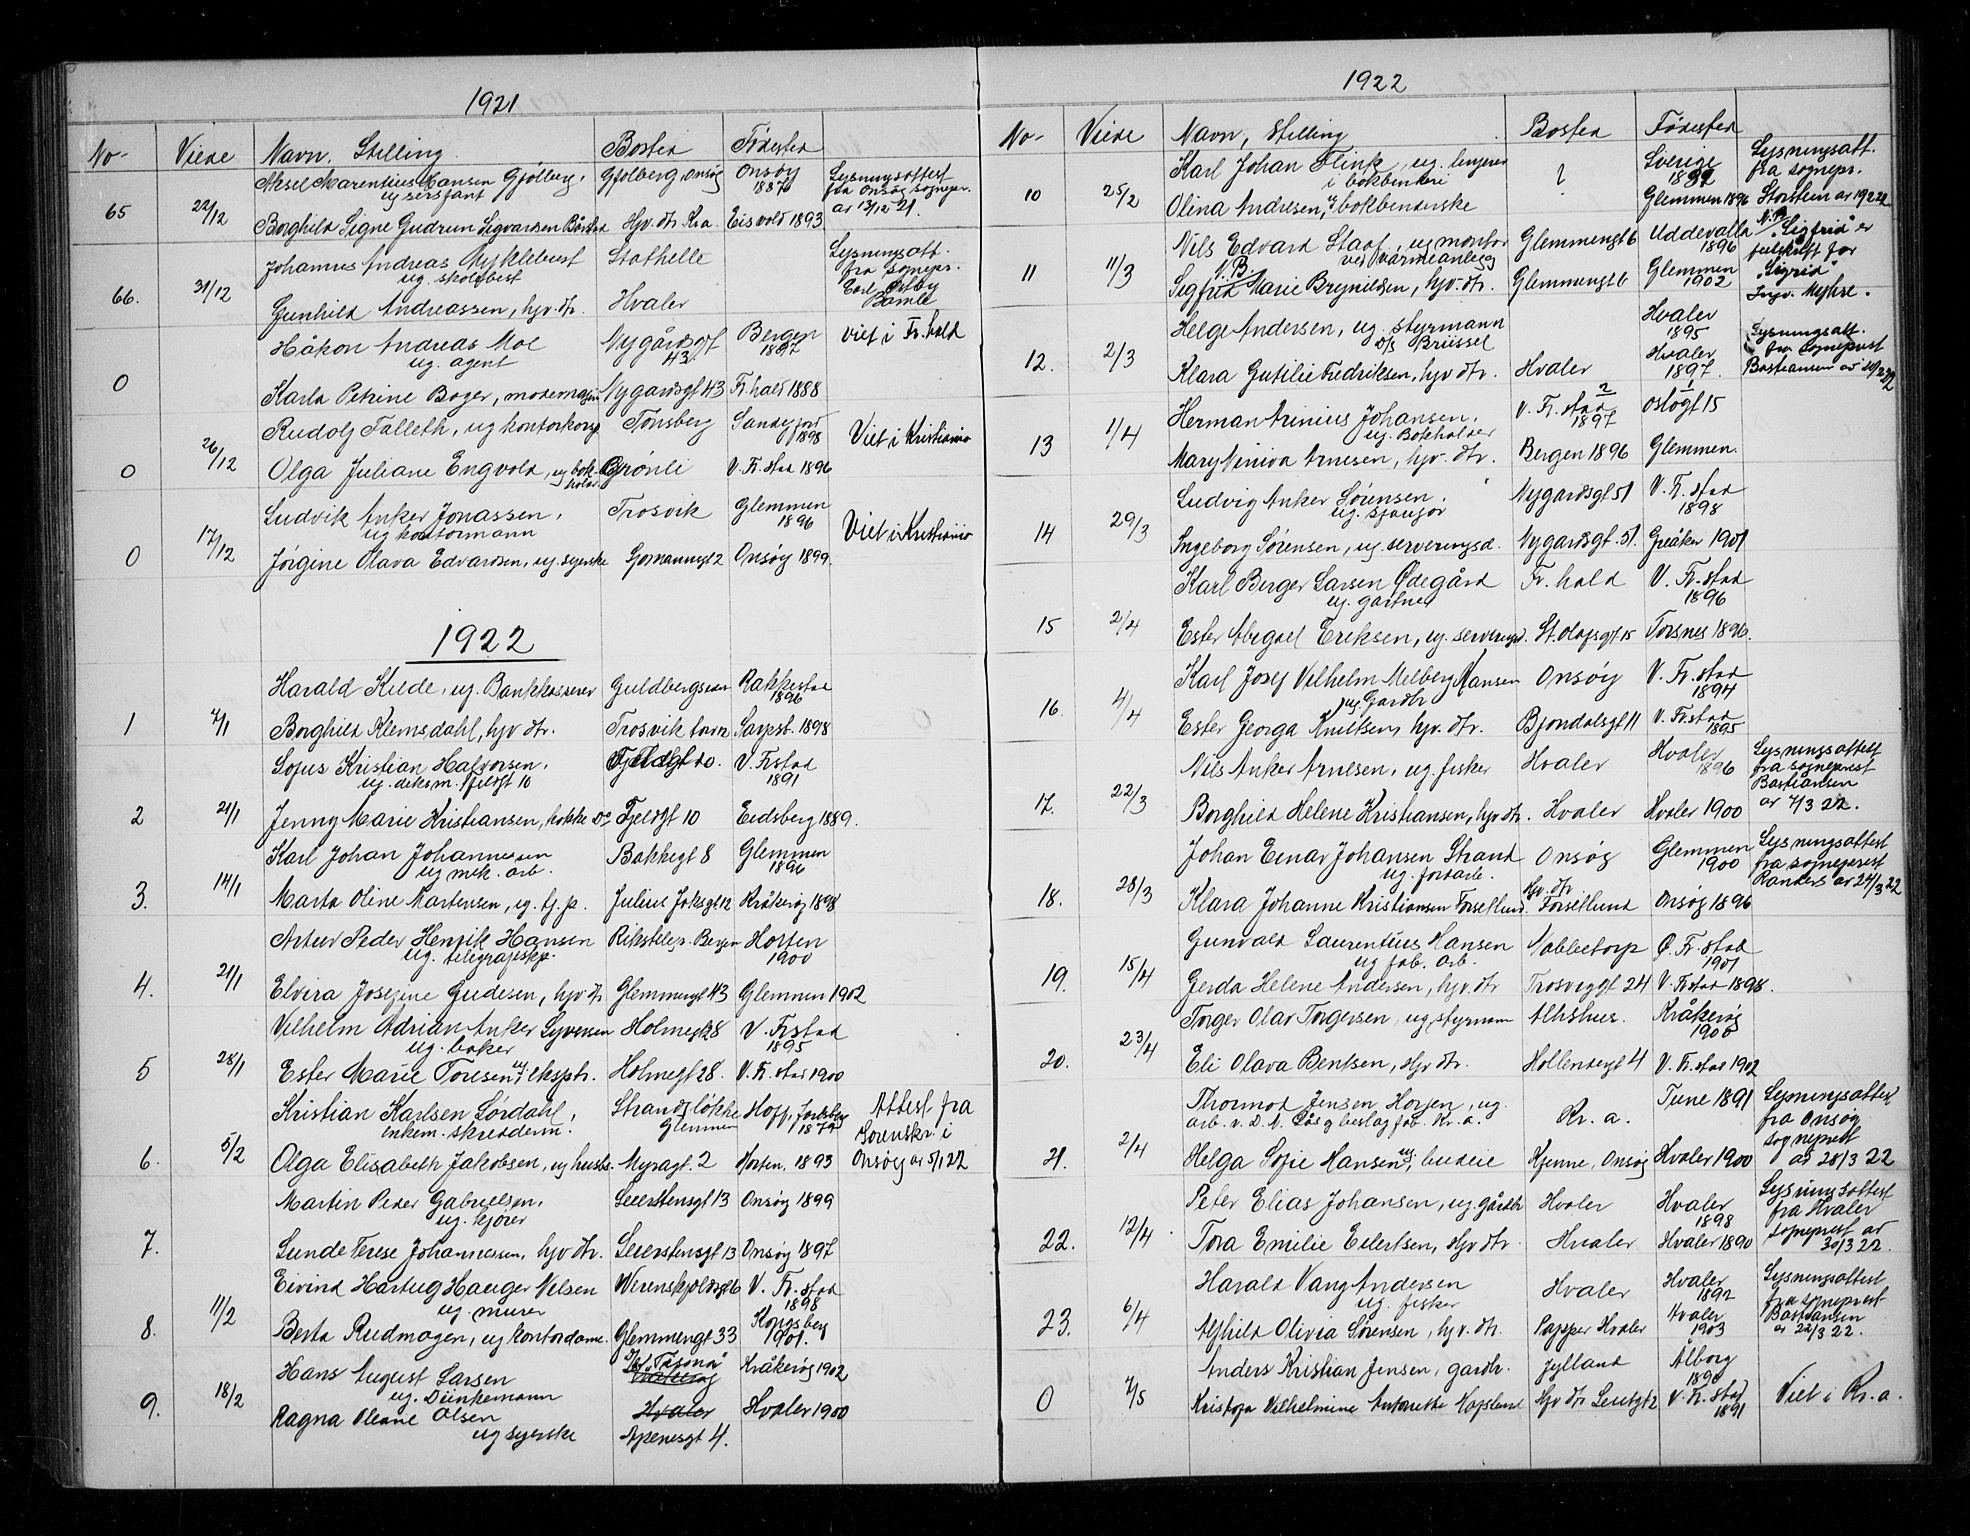 1921
No- Viede Navn, Stilling Bosted Fødested
Aksel Marentius Hansen Gjølberg, Gjølberg, Onsøy Onsøy Lysningsattest
ug sersjant 1887 fra Onsøy sognepr.
65 22/12 Borghild Signe Gudrun Sigvardsen Hjv. dtr. Kra. Eisvold 1893 av 13/12 21.
Johannes Andreas Myklebust Stathelle Lysningsatt.
ug. skolebest fra sognepr.
66. 31/12 Gunhild Andreassen, hjv. dtr. Hvaler Bamle
Håkon Andreas Moe Nygårdsgt Bergen viet i Fr.hald
ug. agent 43 1897
0 Karla Petrine Boger, Nygårdsgt 43 Fr.hald 1888
Rudolf Falleth, ug kontorkorsp Tønsberg Sandefjord
1898 Viet i Kristiania
0 26/12 Olga Juliane Engvold, ug bok- Grønli V. Fr. stad 1896
holder
Ludvik Anker Jonassen, Trosvik Glemmen
ug kontormann 1896 Viet i Kristiania
0 17/12 Jørgine Olava Edvardsen, ug. syerske Sjømannsgt 2 Onsøy 1899.
1922
Harald Kilde, ug. Bankkasserer Guldbergsveien Rakkestad
1896
1 7/1 Borghild Klemsdahl, hjv dtr. Trosvik Sarpsb. 1898
Sofus Kristian Halvorsen, Fjeldgt 10. V. Frstad
ug. deksm. Fjeldgt 10 1891
2 21/1 Jenny Marie Kristiansen, Fjeldgt 10 Eidsberg 1889.
Karl Johan Johannessen Bakkegt 8 Glemmen
ug mek. arb. 1896
3. 14/1 Marta Oline Martensen, ug. tj. p. Julius Jaksgt 12 Kråkerøy 1898
Artur Peder Henrik Hansen Rikstelegr. Bergen Horten
ug. telegrafeksp. 1900
4. 21/1 Elvira Josefine Gudesen, hjv dtr Glemmengt 43 Glemmen 1902
Vilhelm Adrian Anker Syversen Holmegt 28 V. Frstad
ug. baker 1895
5 28/1 Ester Marie Toresen ug. eksptr. Holmegt 28. V. Fr. stad 1900
Kristian Karlsen Sørdahl, Strandsløkke Hoff, Jarlsberg Attest fra
enkem. skredderm. Glemmen 1879 Sorenskr. i
6. 5/2 Olga Elisabeth Jakobsen, ug husb. Myragt. 2 Horten, 1893 Onsøy av 5/1 22
Martin Peder Gabrielsen, Seierstensgt 13 Onsøy 1899
ug. kjører
7. Sunde Terese Johannessen, hjv dtr. Seierstensgt 13 Onsøy 1897
Eivind Hartvig Hauger Nilsen Werenskjoldsgt 6 V. Fr. stad
ug. murer 1898
8. 11/2 Berta Rudmogen, ug kontordame. Glemmengt 33 Kongsberg
1901.
Hans August Larsen Kråkerøy 1902
ug. Dunkemann
9. 18/2 Ragna Oleane Olsen Hvaler Hvaler 1900
ug syerske Apenesgt 4.
1922
No- Viede Navn, Stilling Bosted Fødested
Karl Johan Flink, ug. linjerer ? Sverige Lysningsatt.
i bokbinderi 1892 fra sognepr.
10 25/2 Olina Andresen, ug bokbinderske Glemmen 1896 Storstein av 19/2 22
Nils Edvard Staaf, ug montør Glemmengt 6 Uddevalla N.B. "Sigfrid" er
ved varmeanlegg 1896 feilskrift for
11 11/3 N.B. Sigfrid Marie Brynildsen, hjv. dtr. Glemmengt 6 Glemmen "Sigrid"
1902 Ingv. Myhre.
Helge Andersen, ug. styrmann Hvaler
D/S Brüssel 1895 Lysningsatt.
12. 2/3 Klara Gutilie Fredriksen, hjv dtr. Hvaler Hvaler fra sogneprest
1897 Bastiansen av 10/2 22
Herman Arinius Johansen, V. Fr. stad Oslogt 15
ug. Bokholder 1897
13 1/4 Mary Niniva Arnesen, hjv. dtr. Bergen 1896 Glemmen.
Ludvig Anker Sørensen. Nygårdsgt 51 V. Fr. stad
ug. sjauffør 1898
14 29/3 Ingeborg Sørensen, ug. serveringsd. Nygårdsgt. 51. Greåker 1901
Karl Berger Larsen Ødegård Fr. hald V. Fr. stad
ug. gartner 1896
15 2/4 Ester Abigael Eriksen, ug. serveringsd. St. Olafsgt 15 Torsnes 1896.
Karl Josef Vilhelm Melberg Hansen Onsøy V. Fr. stad
ug Gardbr 1894
16. 4/4 Ester Georga Knutsen, hjv. dtr. Bjøndalsgt 11 V. Frstad
1895
Nils Anker Arnesen, ug. fisker Hvaler Hvaler Lysningsattest
1896 fra sogneprest
Bastiansen
17. 22/3 Borghild Helene Kristiansen, hjv dtr. Hvaler Hvaler 1900 av 7/3 22.
Johan Einar Johansen Strand Onsøy Glemmen Lysningsattest
ug. forarb. 1900 fra sogneprest
18. 28/3 Klara Johanne Kristiansen Forsetlund. Hjv. dtr Forsetlund Onsøy 1896 Randers av 24/3 22
Gunvald Laurentius Hansen Nabbetorp Ø. Fr. stad
ug fab. arb. 1901
19. 15/4 Gerda Helene Andersen, hjv. dtr Trosvigt 24 V. Fr stad 1898.
Torger Olav Torgersen, ug. styrmann Althshus. Kråkerøy
1900
20. 23/4 Eli Olava Bentsen, Hjv dtr. Hollendergt 4 V. Fr. stad 1902
Thormod Jensen Horgen, ug. Kr. a. Tune 1891 Lysningsattest
arb. v. D. N. Lås og beslag fab. Kr. a. fra Onsøy
sogneprest
21. 2/4 Helga Sofie Hansen, ug. budeie Kjenne, Onsøy Hvaler 1900 av 28/3 22
Peter Elias Johansen, ug. gårdbr Hvaler Hvaler Lysningsattest
1898 fra Hvaler
22. 12/4 Tora Emilie Eilertsen, Hjv dtr. Hvaler Hvaler 1890 sogneprest av
30/3 22.
Harald Vang Andersen Hvaler Hvaler Lysningsattest
ug. fisker 1892 fra sogneprest
23. 6/4 Alfhild Olivia Sørensen, hjv. dtr. Papper Hvaler Hvaler Bastiansen
1903 av 22/3 22.
Anders Kristian Jensen, gardbr. Jylland Ålborg
1890
0 7/5 Kristofa Vilhelmine Antonette Hafslund Hjv dtr Leutgt 2 V. Fr. stad Viet i Kr. a.
1891